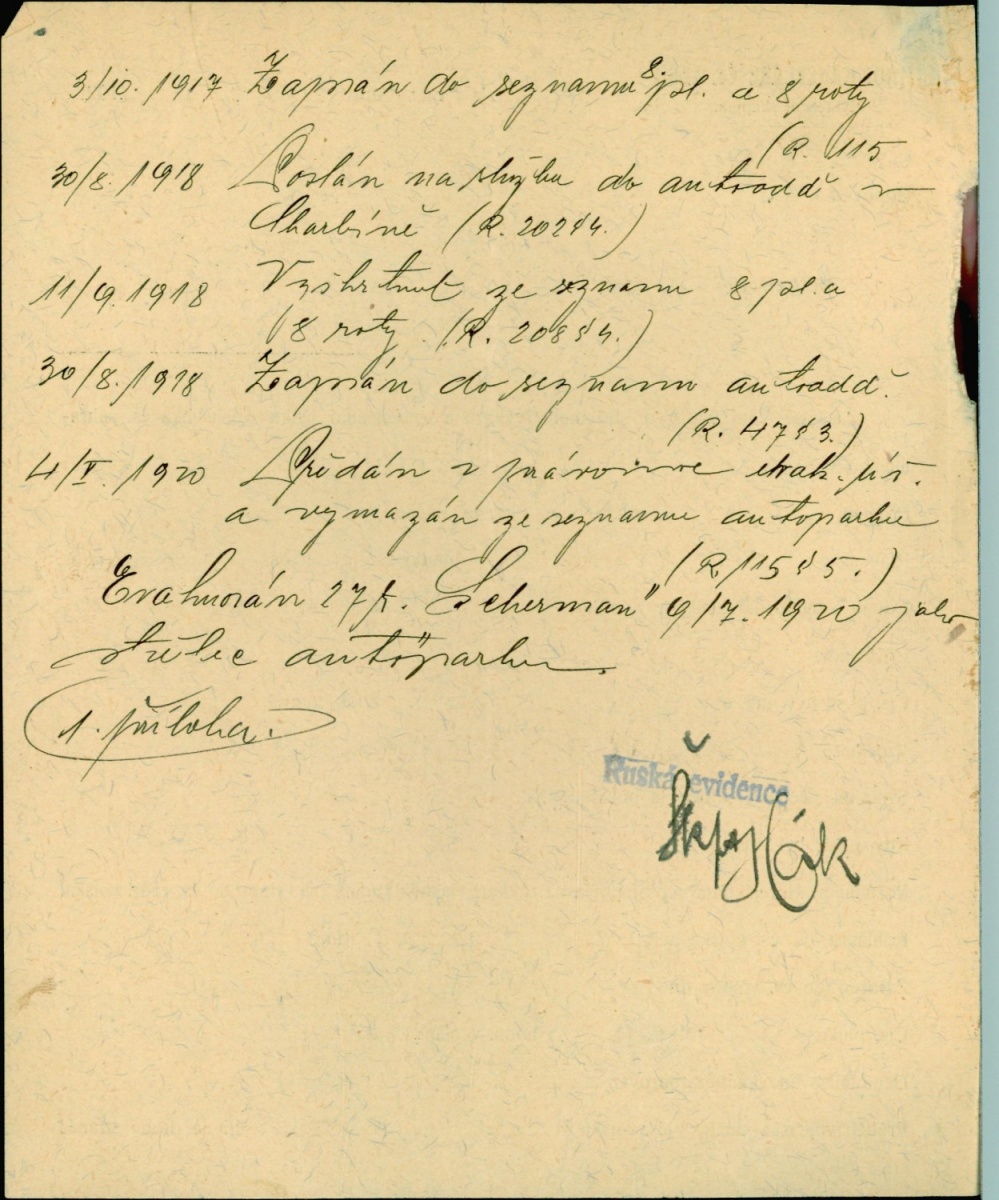 3/10. 1917 Zapsán do seznamu 8. pl. a 8 roty
(R. 115
30/8. 1918 Poslán na službu do autoodd v
Charbíně (R. 202 § 4.)
11/9. 1918 Vyškrtnut ze seznamu 8 pl. a
8 roty (R. 208 § 4.)
30/8. 1918 Zapsán do seznamu autoodd.
(R. 47 § 3.)
4/V. 1920 Předán v evak.
a vymazán ze seznamu autoparku
(R. 115 § 5.)
Evakuován 27/t. „Scherman" 9/7. 1920 jako
střelec autoparku.
1. příloha.
Ruská evidence